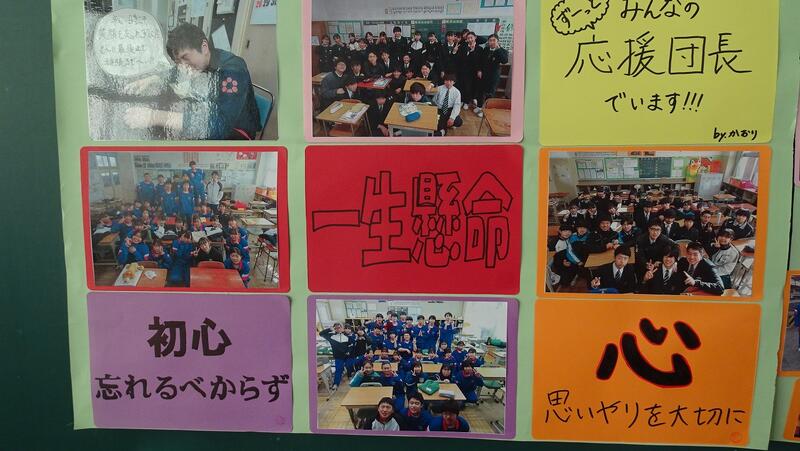 ずーっと
みんなの
応援団長
でいます!!!
by.かおり
一生懸命
初心
忘れるべからず
心
思いやりを大切に